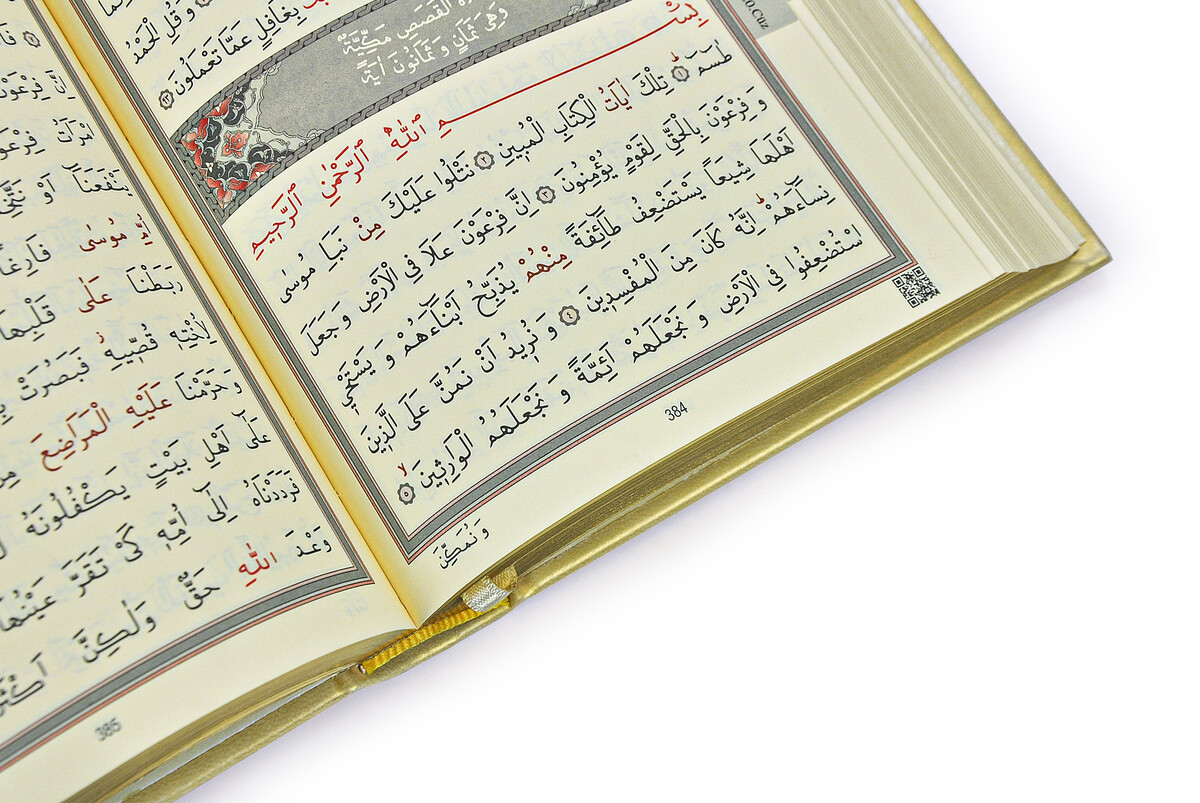 وَقُلِ الْحَمْدُ
بِغَافِلٍ عَمَّا تَعْمَلُونَ ﴿٩٣﴾
الْقَصَصِ مَكِّيَّةٌ
وَهِىَ ثَمَانٍ وَ ثَمَانُونَ اٰيَةً
بِسْـــمِ اللّٰهِ الرَّحْمٰنِ الرَّحٖيمِ
طٰسٓمٓ ﴿١﴾ تِلْكَ اٰيَاتُ الْكِتَابِ الْمُبٖينِ ﴿٢﴾ نَتْلُوا عَلَيْكَ مِنْ نَبَاِ مُوسٰى
وَ فِرْعَوْنَ بِالْحَقِّ لِقَوْمٍ يُؤْمِنُونَ ﴿٣﴾ اِنَّ فِرْعَوْنَ عَلَا فِى الْاَرْضِ وَ جَعَلَ
اَهْلَهَا شِيَعاً يَسْتَضْعِفُ طَٓائِفَةً مِنْهُمْ يُذَبِّحُ اَبْنَٓاءَهُمْ وَ يَسْتَحْيٖ
نِسَٓاءَهُمْ ط اِنَّهُ كَانَ مِنَ الْمُفْسِدٖينَ ﴿٤﴾ وَ نُرٖيدُ اَنْ نَمُنَّ عَلَى الَّذٖينَ
اسْتُضْعِفُوا فِى الْاَرْضِ وَ نَجْعَلَهُمْ اَئِمَّةً وَ نَجْعَلَهُمُ الْوَارِثٖينَ لا ﴿٥﴾
وَ نُمَكِّنَ
384
اِنَّ فِرْعَوْنَ
فِرْعَوْنَ
اَوْ
مُوسٰى فَارِغاً
رَبَطْنَا عَلٰى قَلْبِهَا
لِاُخْتِهٖ قُصّٖيهِ فَبَصُرَتْ
وَ حَرَّمْنَا عَلَيْهِ الْمَرَاضِعَ
عَلٰٓى اَهْلِ بَيْتٍ يَكْفُلُونَهُ
فَرَدَدْنَاهُ اِلٰٓى اُمِّهٖ كَىْ تَقَرَّ عَيْنُهَا
وَعْدَ اللّٰهِ حَقٌّ وَلٰكِنَّ
385